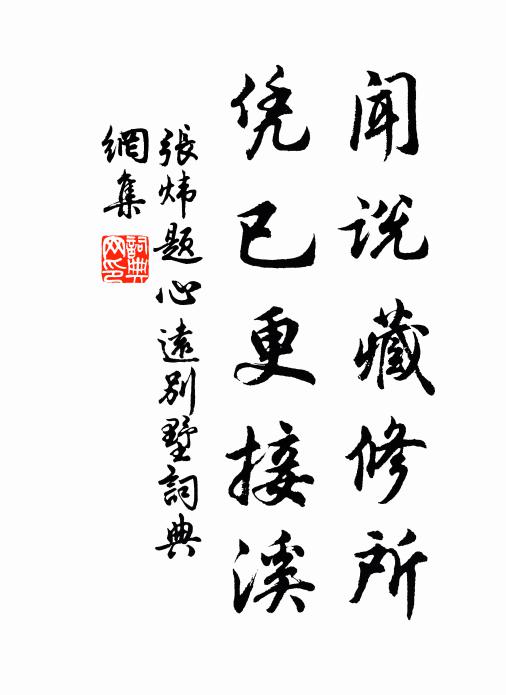 闻说藏修所
凭已更接溪
張炜题心遠别墅詞典
網集
詞典
网印